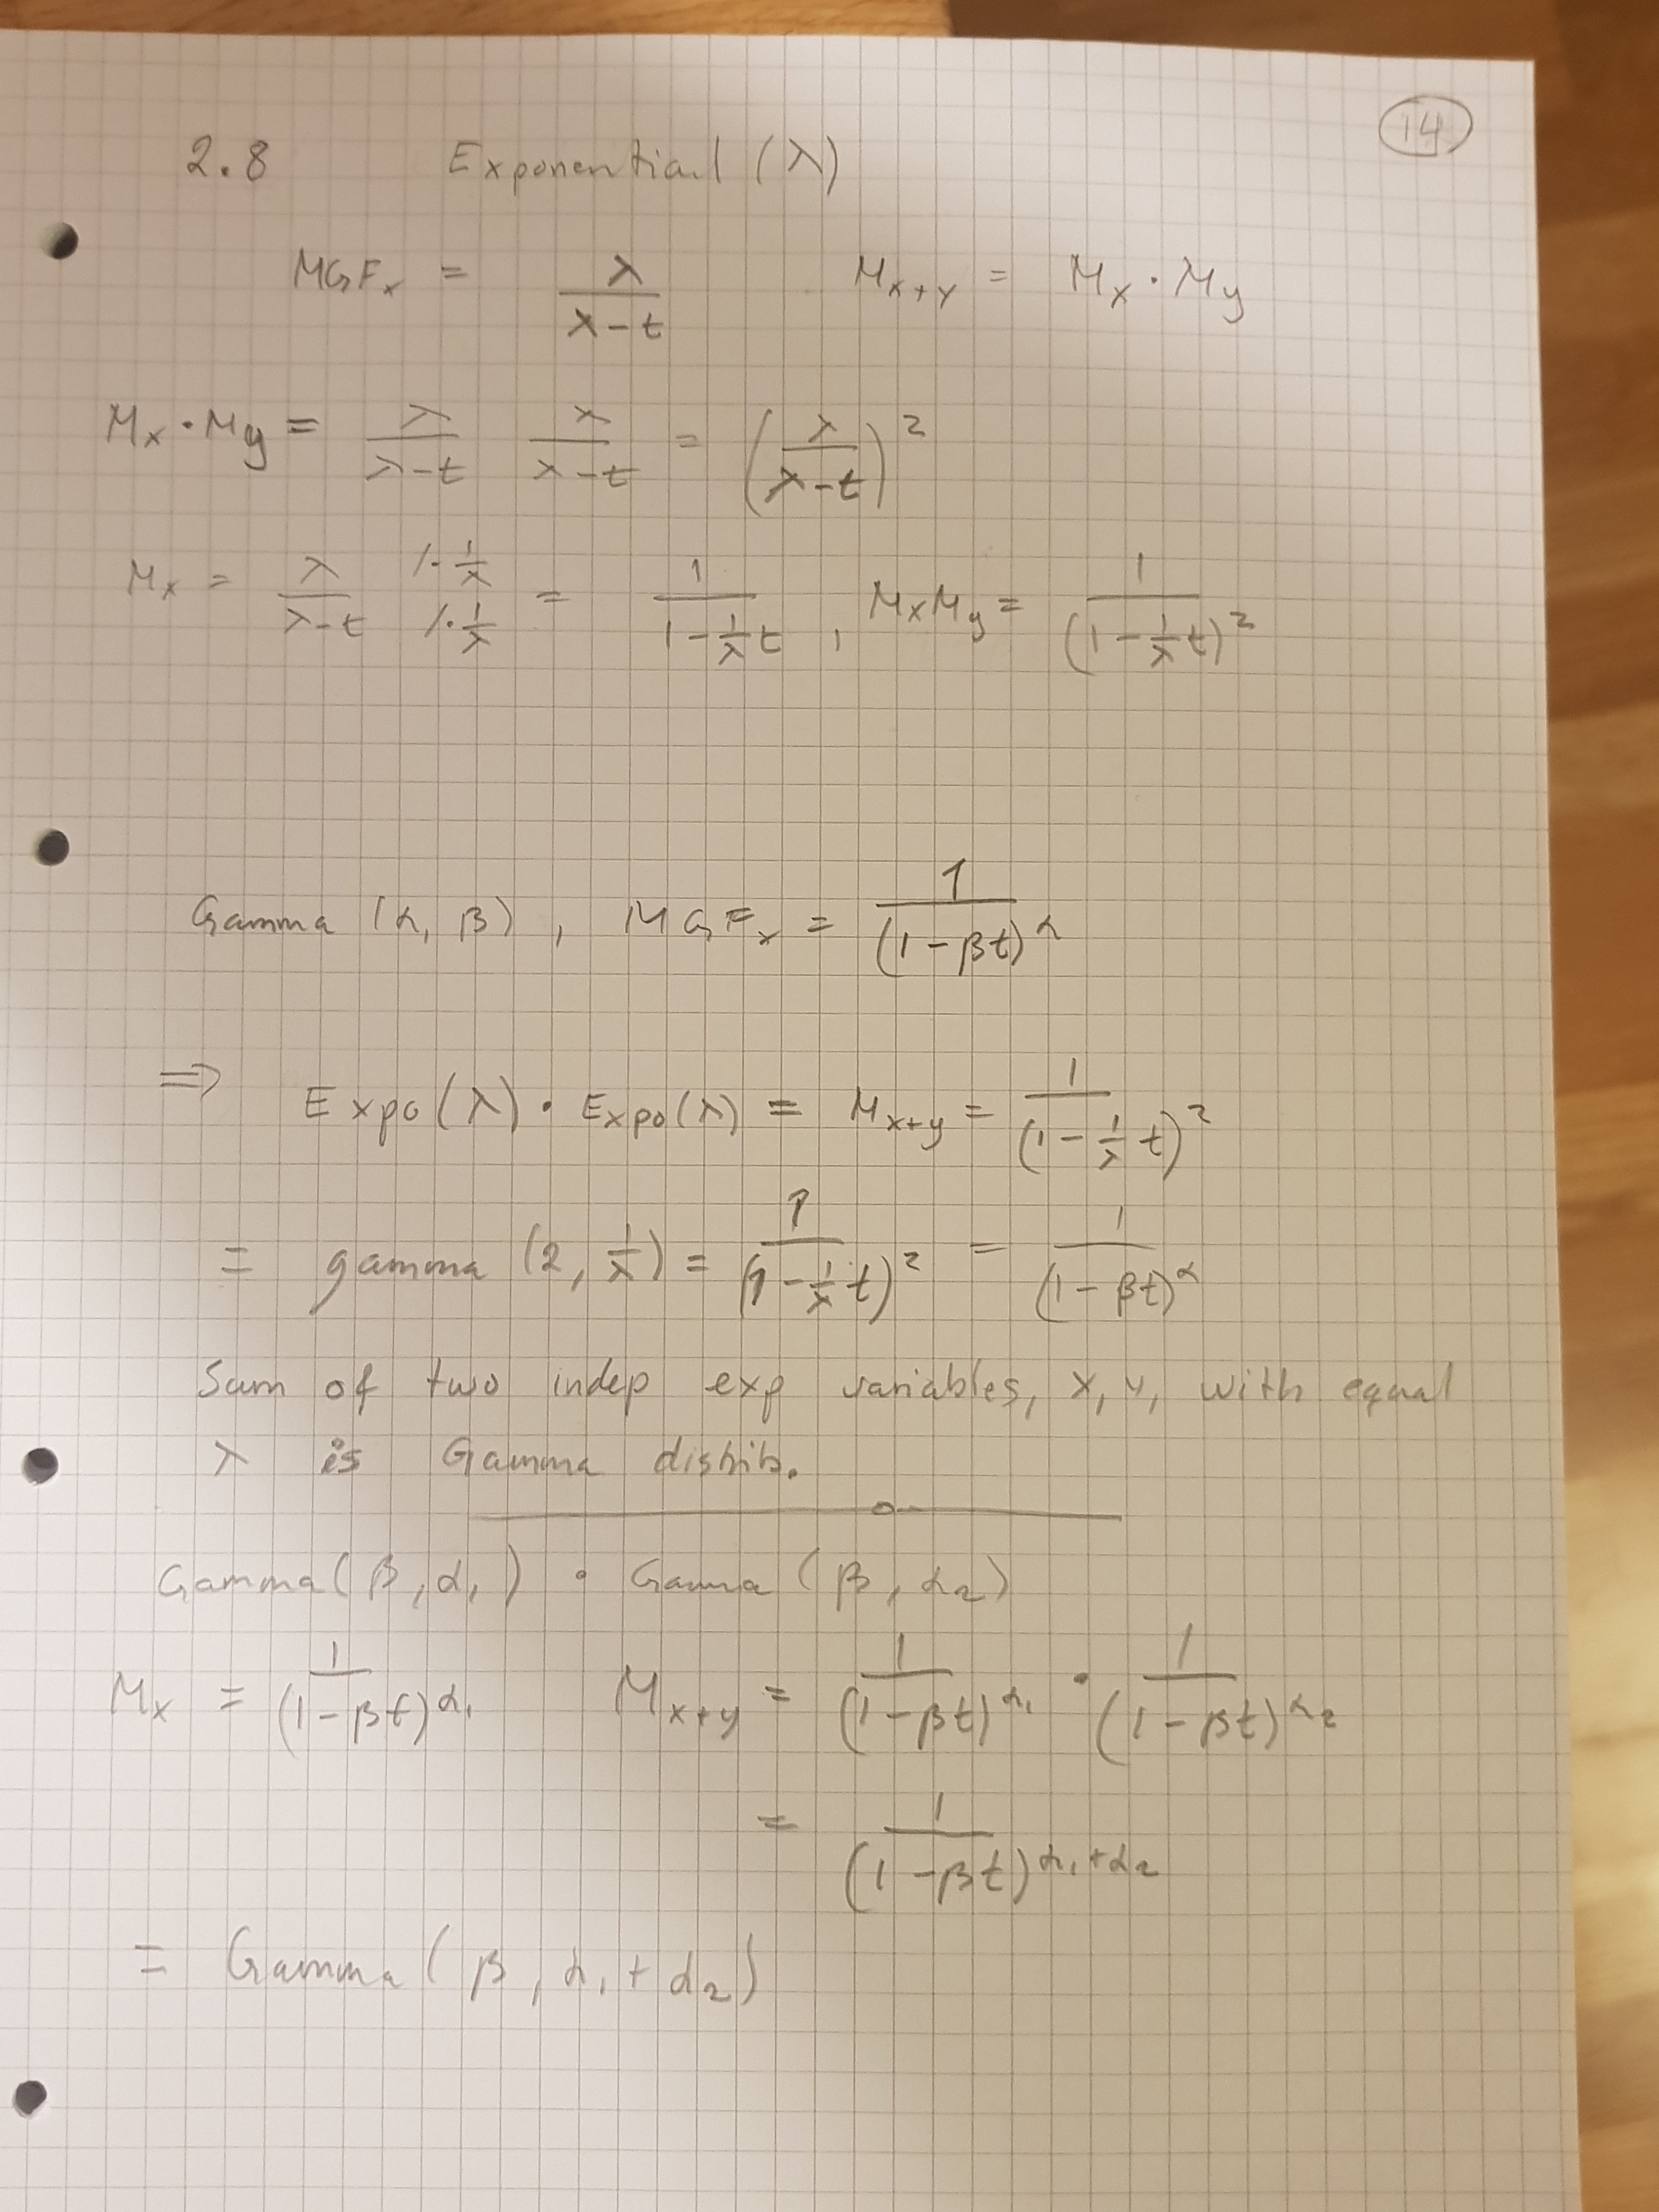 14
2.8 Exponential (λ)
MGF_x = λ/(λ-t) M_{x+y} = M_x · M_y
M_x · M_y = λ/(λ-t) λ/(λ-t) = (λ/(λ-t))^2
M_x = λ/(λ-t) /·1/λ /·1/λ = 1/(1-1/λ t) , M_x M_y = 1/(1-1/λ t)^2
Gamma (α, β) , MGF_x = 1/(1-βt)^α
⇒ Expo(λ) · Expo(λ) = M_{x+y} = 1/(1-1/λ t)^2
= gamma (2, 1/λ) = 1/(1-1/λ t)^2 = 1/(1-βt)^α
Sum of two indep exp variables, x, y, with equal
λ is Gamma distrib.
Gamma(β, α_1) · Gamma (β, α_2)
M_x = 1/(1-βt)^{α_1} M_{x+y} = 1/(1-βt)^{α_1} · 1/(1-βt)^{α_2}
= 1/(1-βt)^{α_1+α_2}
= Gamma (β, α_1+α_2)